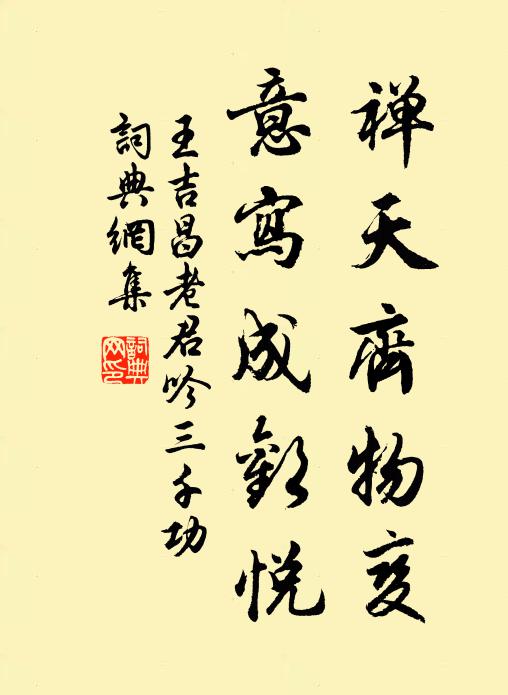 禅天齊物变
意寫成歡悦
王吉昌老君吟三千功
詞典網集
詞典網印